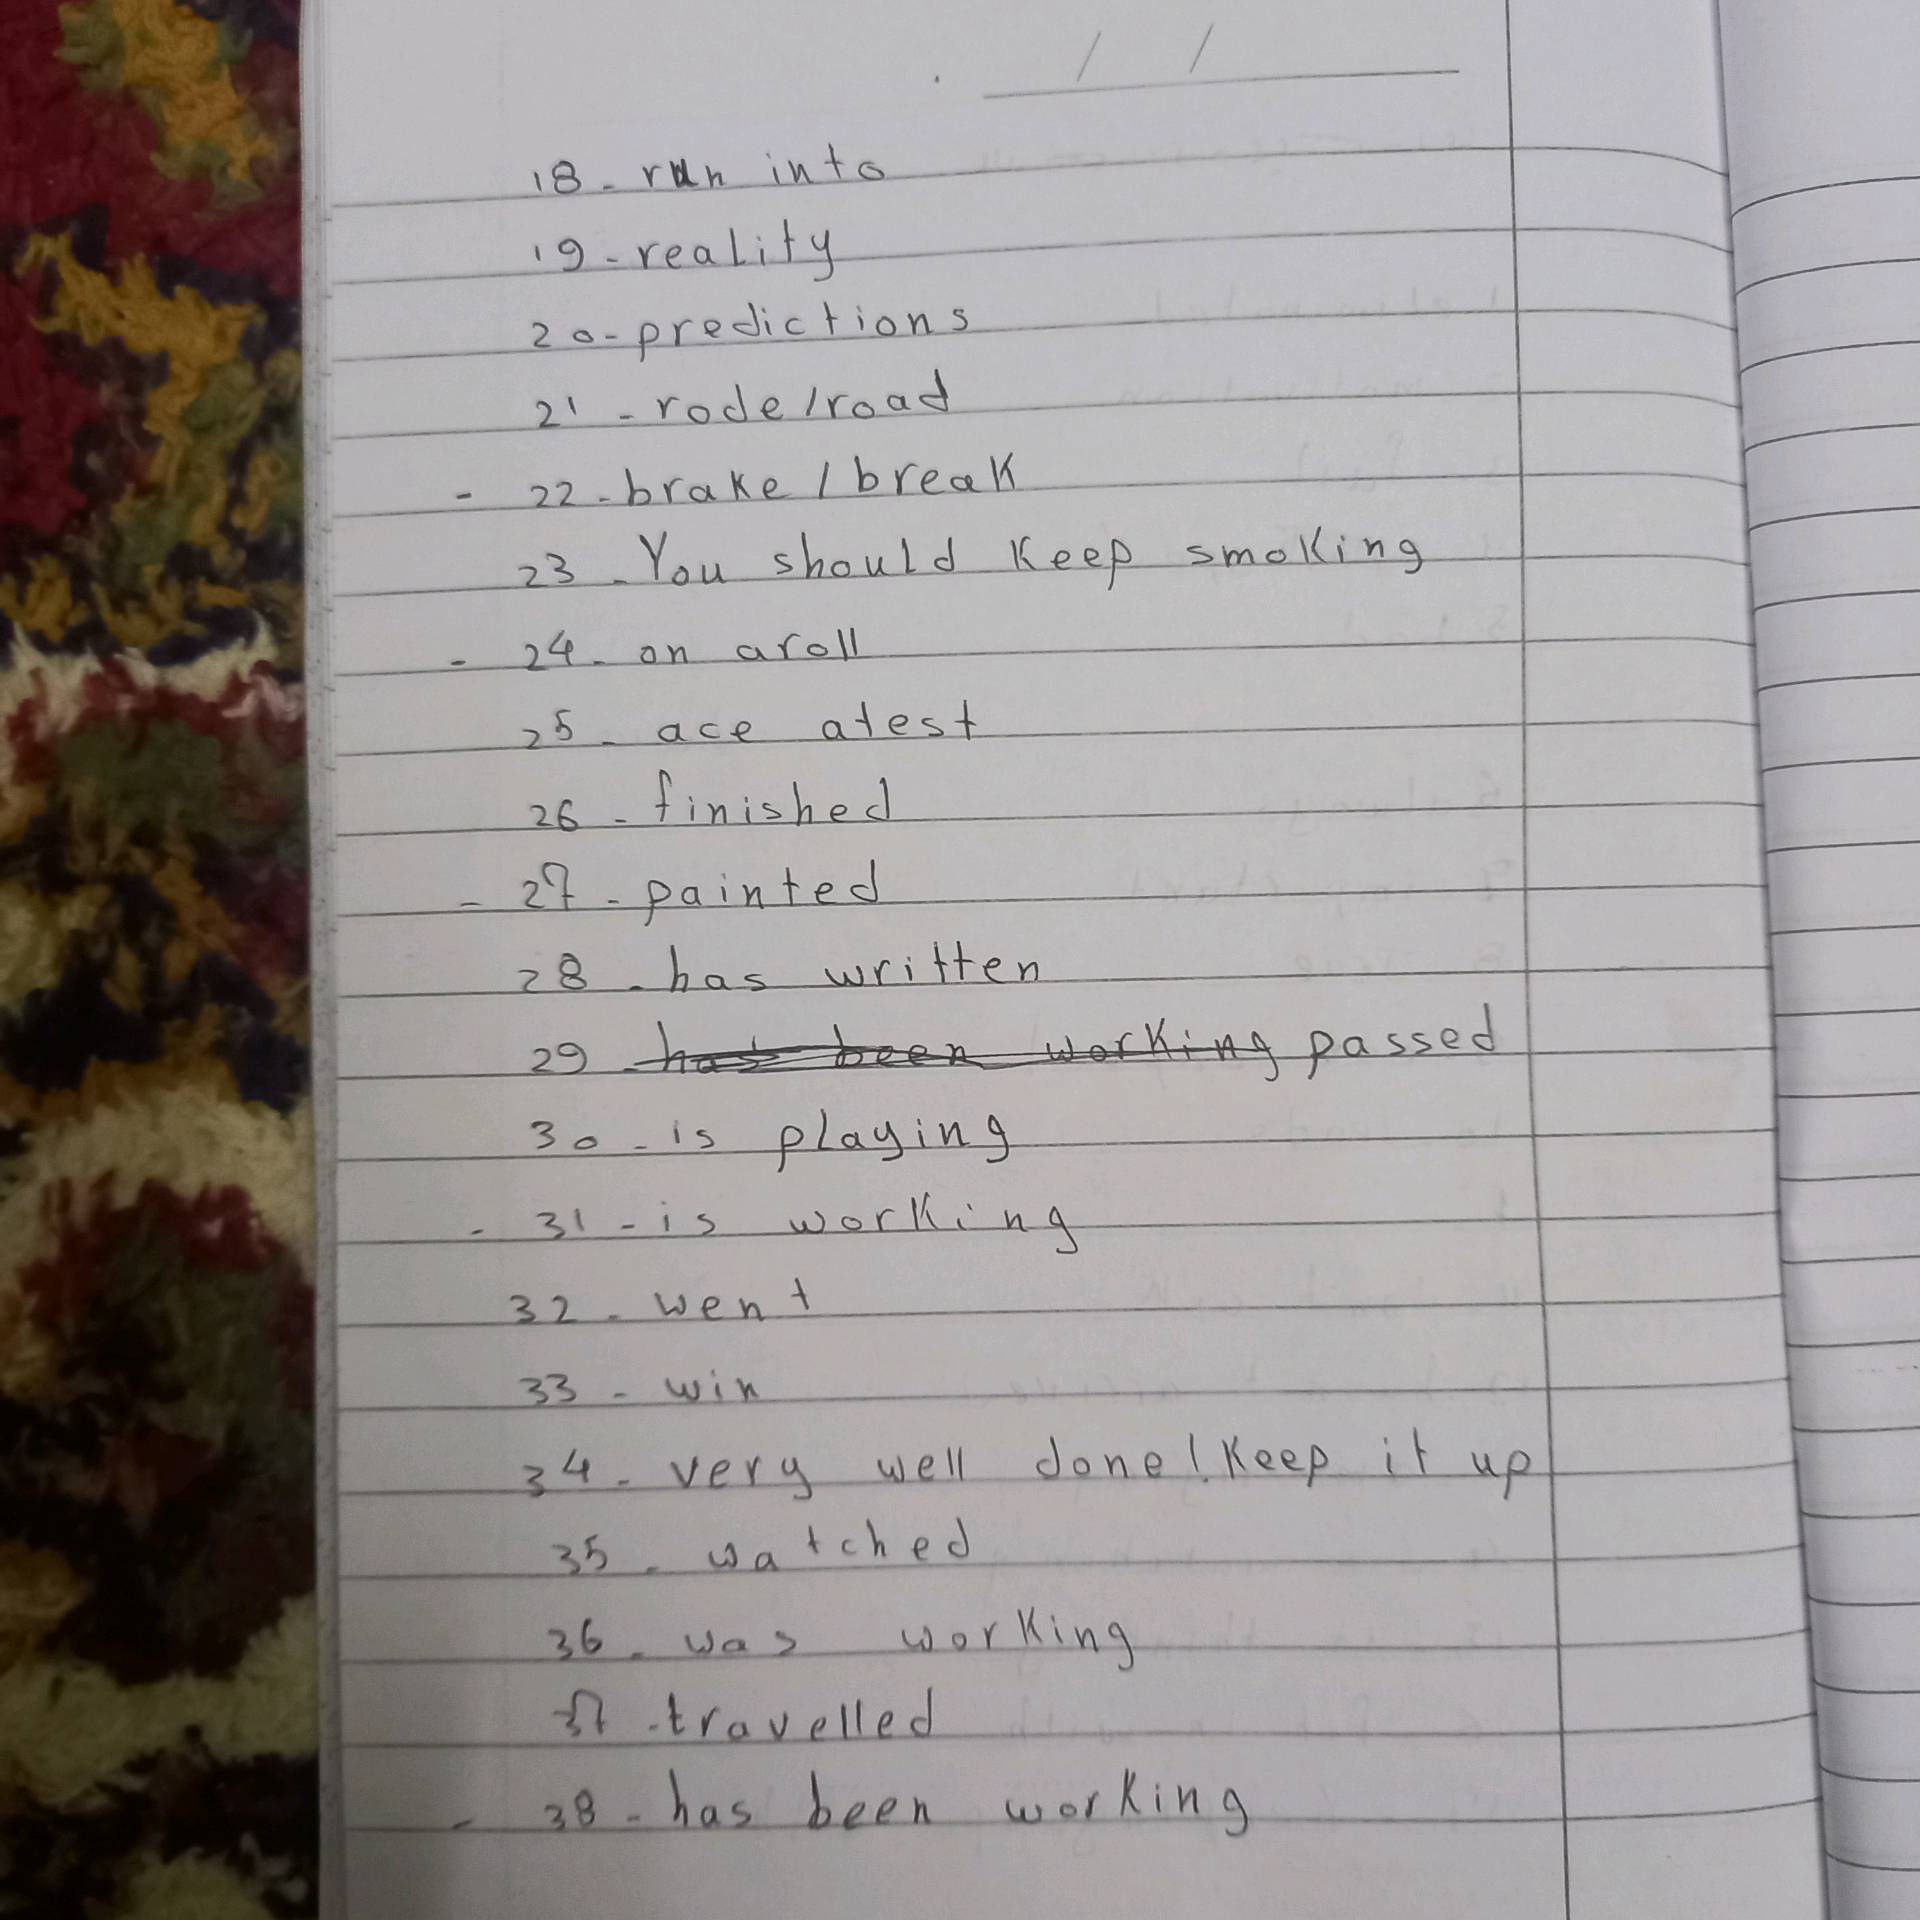 / /
18 - run into
19 - reality
20 - predictions
21 - rode / road
- 22 - brake / break
23 - You should Keep smoking
- 24 - on aroll
25 - ace atest
26 - finished
- 27 - painted
28 - has written
29 - has been working passed
30 - is playing
- 31 - is working
32 - went
33 - win
34 - very well done! Keep it up
35 - watched
36 - was working
37 - travelled
- 38 - has been working